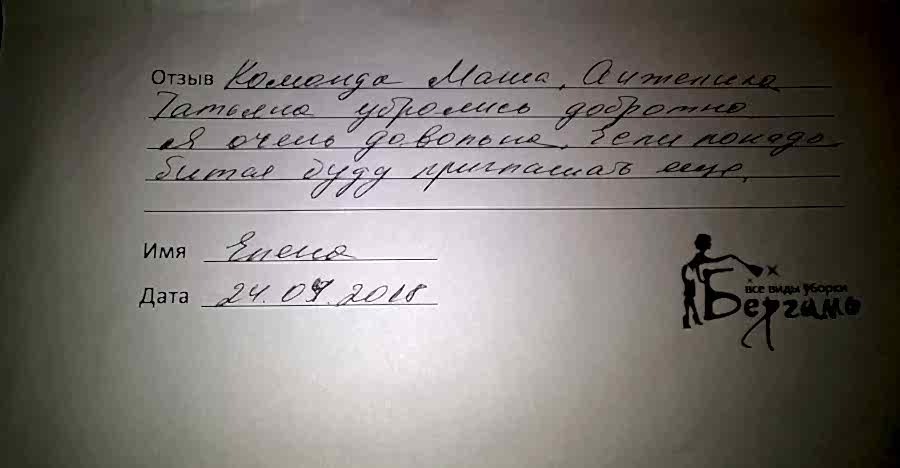 Отзыв Команда Маша, Анжелика
Татьяна убрались добротно
Я очень довольна, Если понадо
битая буду приглашать еще.
Имя Елена
Дата 24.07.2018
все виды уборки
Бергамо